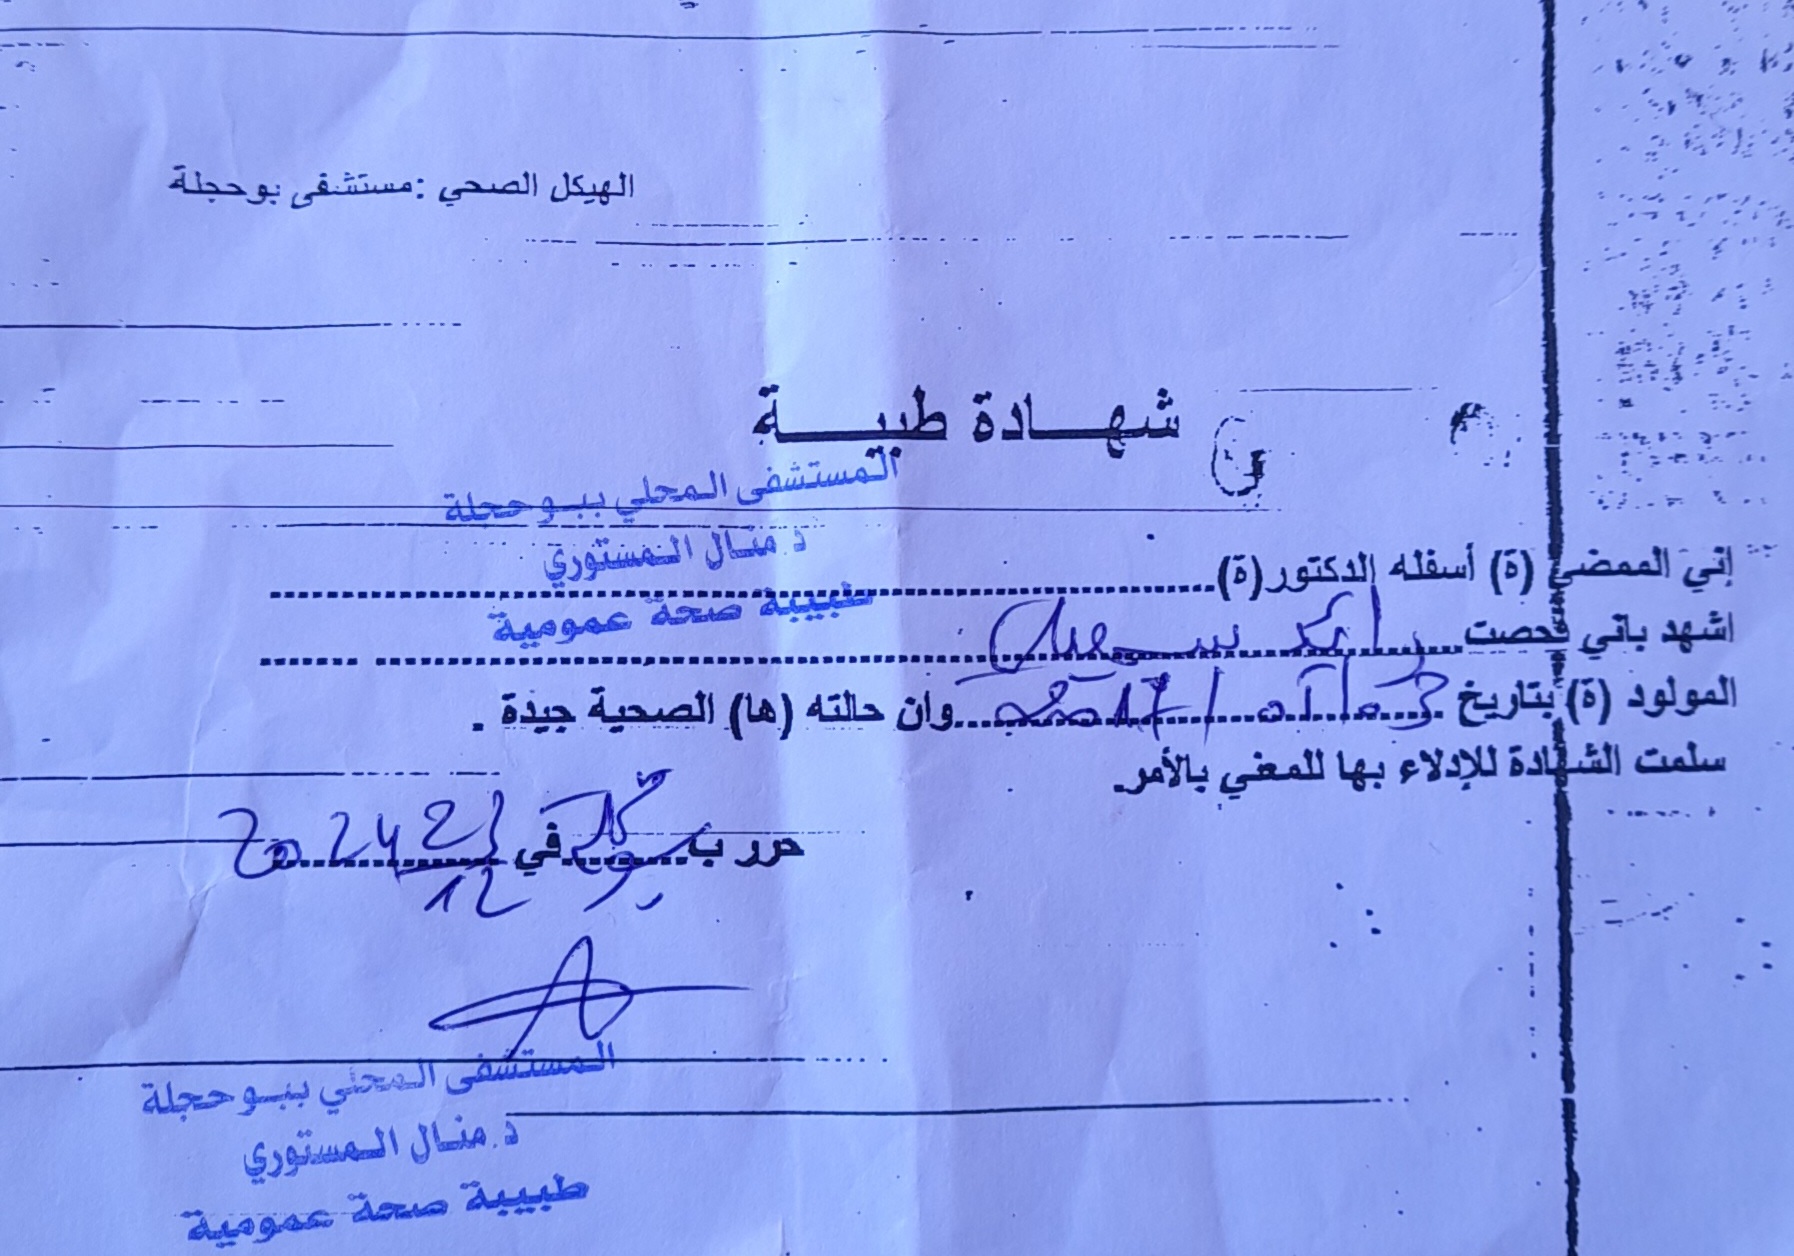 الهيكل الصحي : مستشفى بوحجلة
شهادة طبية
المستشفى المحلي ببوحجلة
د. منال المستوري
طبيبة صحة عمومية
إني الممضي (ة) أسفله الدكتور(ة)
اشهد باني فحصت
المولود (ة) بتاريخ وان حالته (ها) الصحية جيدة .
سلمت الشهادة للإدلاء بها للمعني بالأمر.
حرر ب في
المستشفى المحلي ببوحجلة
د. منال المستوري
طبيبة صحة عمومية